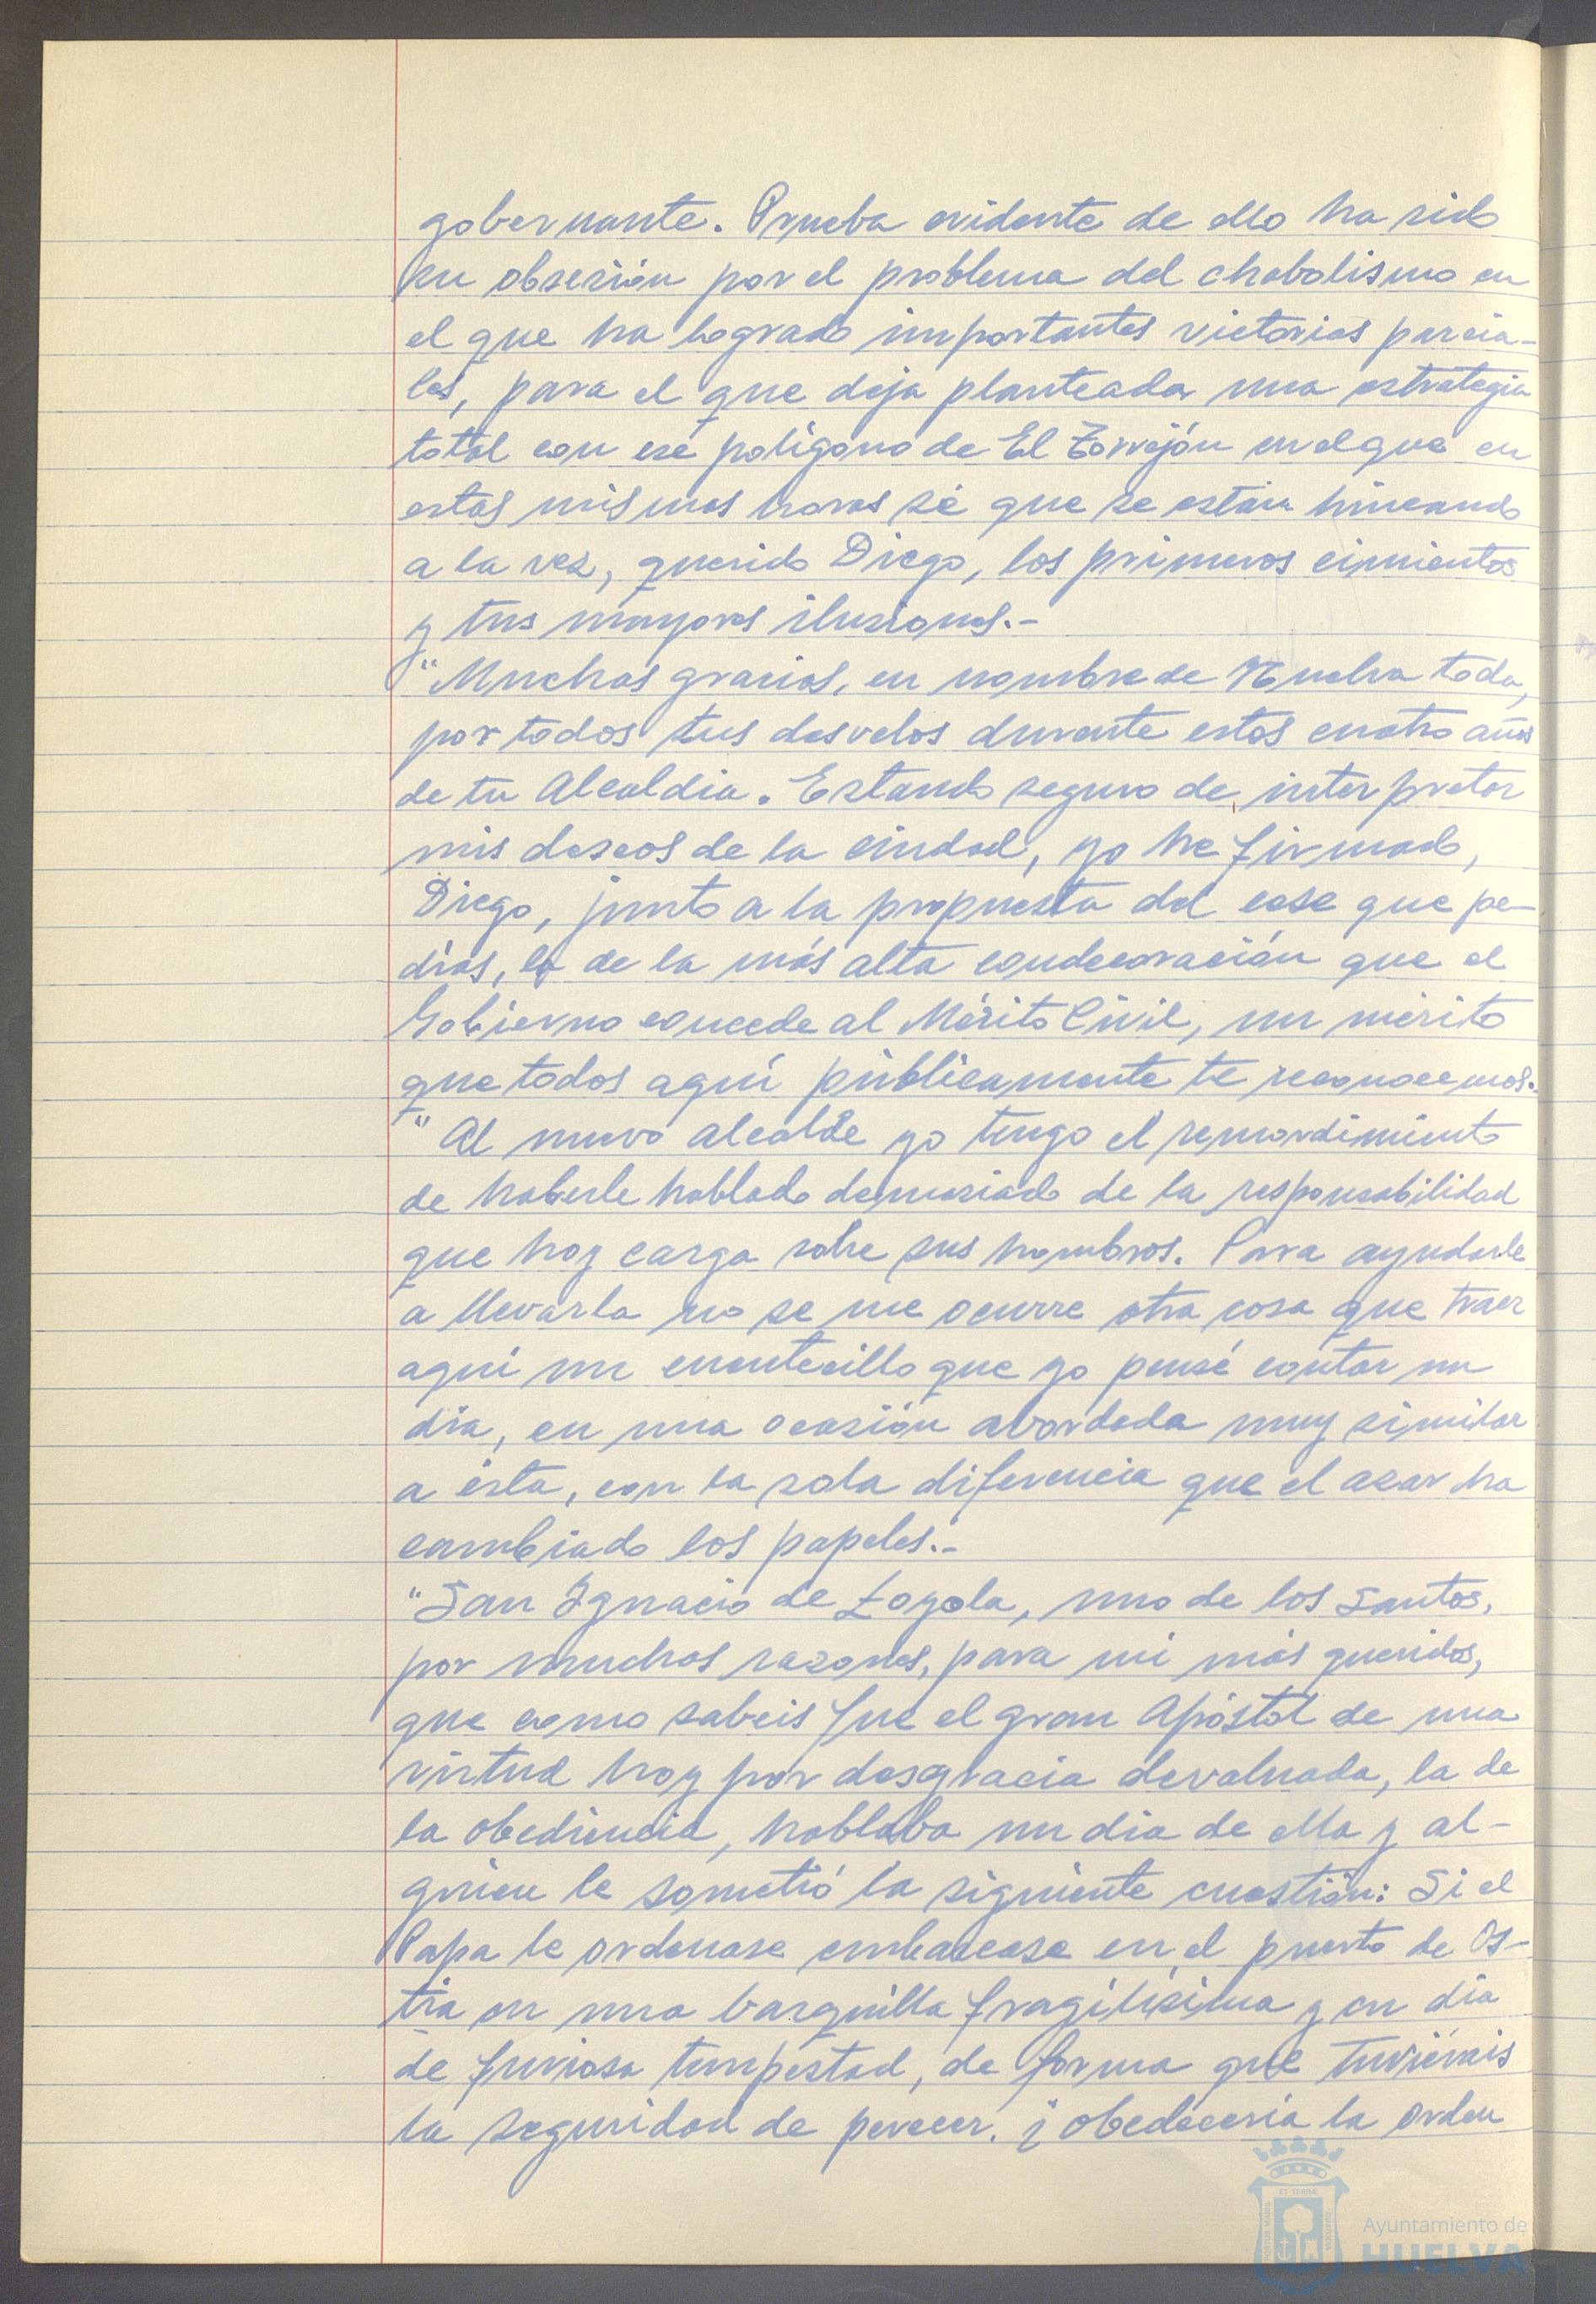 gobernante. Prueba evidente de ello ha sido
su obsesión por el problema del chabolismo en
el que ha logrado importantes victorias parcia-
les, para el que deja planteada una estrategia
total con ese polígono de El Torrejón en el que en
estas mismas horas sé que se están hincando
a la vez, querido Diego, los primeros cimientos
y tus mayores ilusiones.-
"Muchas gracias, en nombre de Huelva toda,
por todos tus desvelos durante estos cuatro años
de tu Alcaldia. Estando seguro de interpretar
mis deseos de la ciudad, yo he firmado,
Diego, junto a la propuesta del cese que pe-
dias, la de la más alta condecoración que el
Gobierno concede al Mérito Civil, un mérito
que todos aquí públicamente te reconocemos.-
"Al nuevo alcalde yo tengo el remordimiento
de haberle hablado demasiado de la responsabilidad
que hoy carga sobre sus hombros. Para ayudarle
a llevarla no se me ocurre otra cosa que traer
aquí un cuentecillo que yo pensé contar un
dia, en una ocasión abordada muy similar
a ésta, con la sola diferencia que el azar ha
cambiado los papeles.-
"San Ignacio de Loyola, uno de los Santos,
por muchas razones, para mi más queridos,
que como sabeis fue el gran Apóstol de una
virtud hoy por desgracia devaluada, la de
la obediencia, hablaba un dia de ella y al-
guien le sometió la siguiente cuestión: Si el
Papa le ordenase embarcase en el puerto de Os-
tia en una barquilla fragilísima y en dia
de furiosa tempestad, de forma que tuviérais
la seguridad de perecer. ¿Obedeceria la orden
Ayuntamiento de
HUELVA